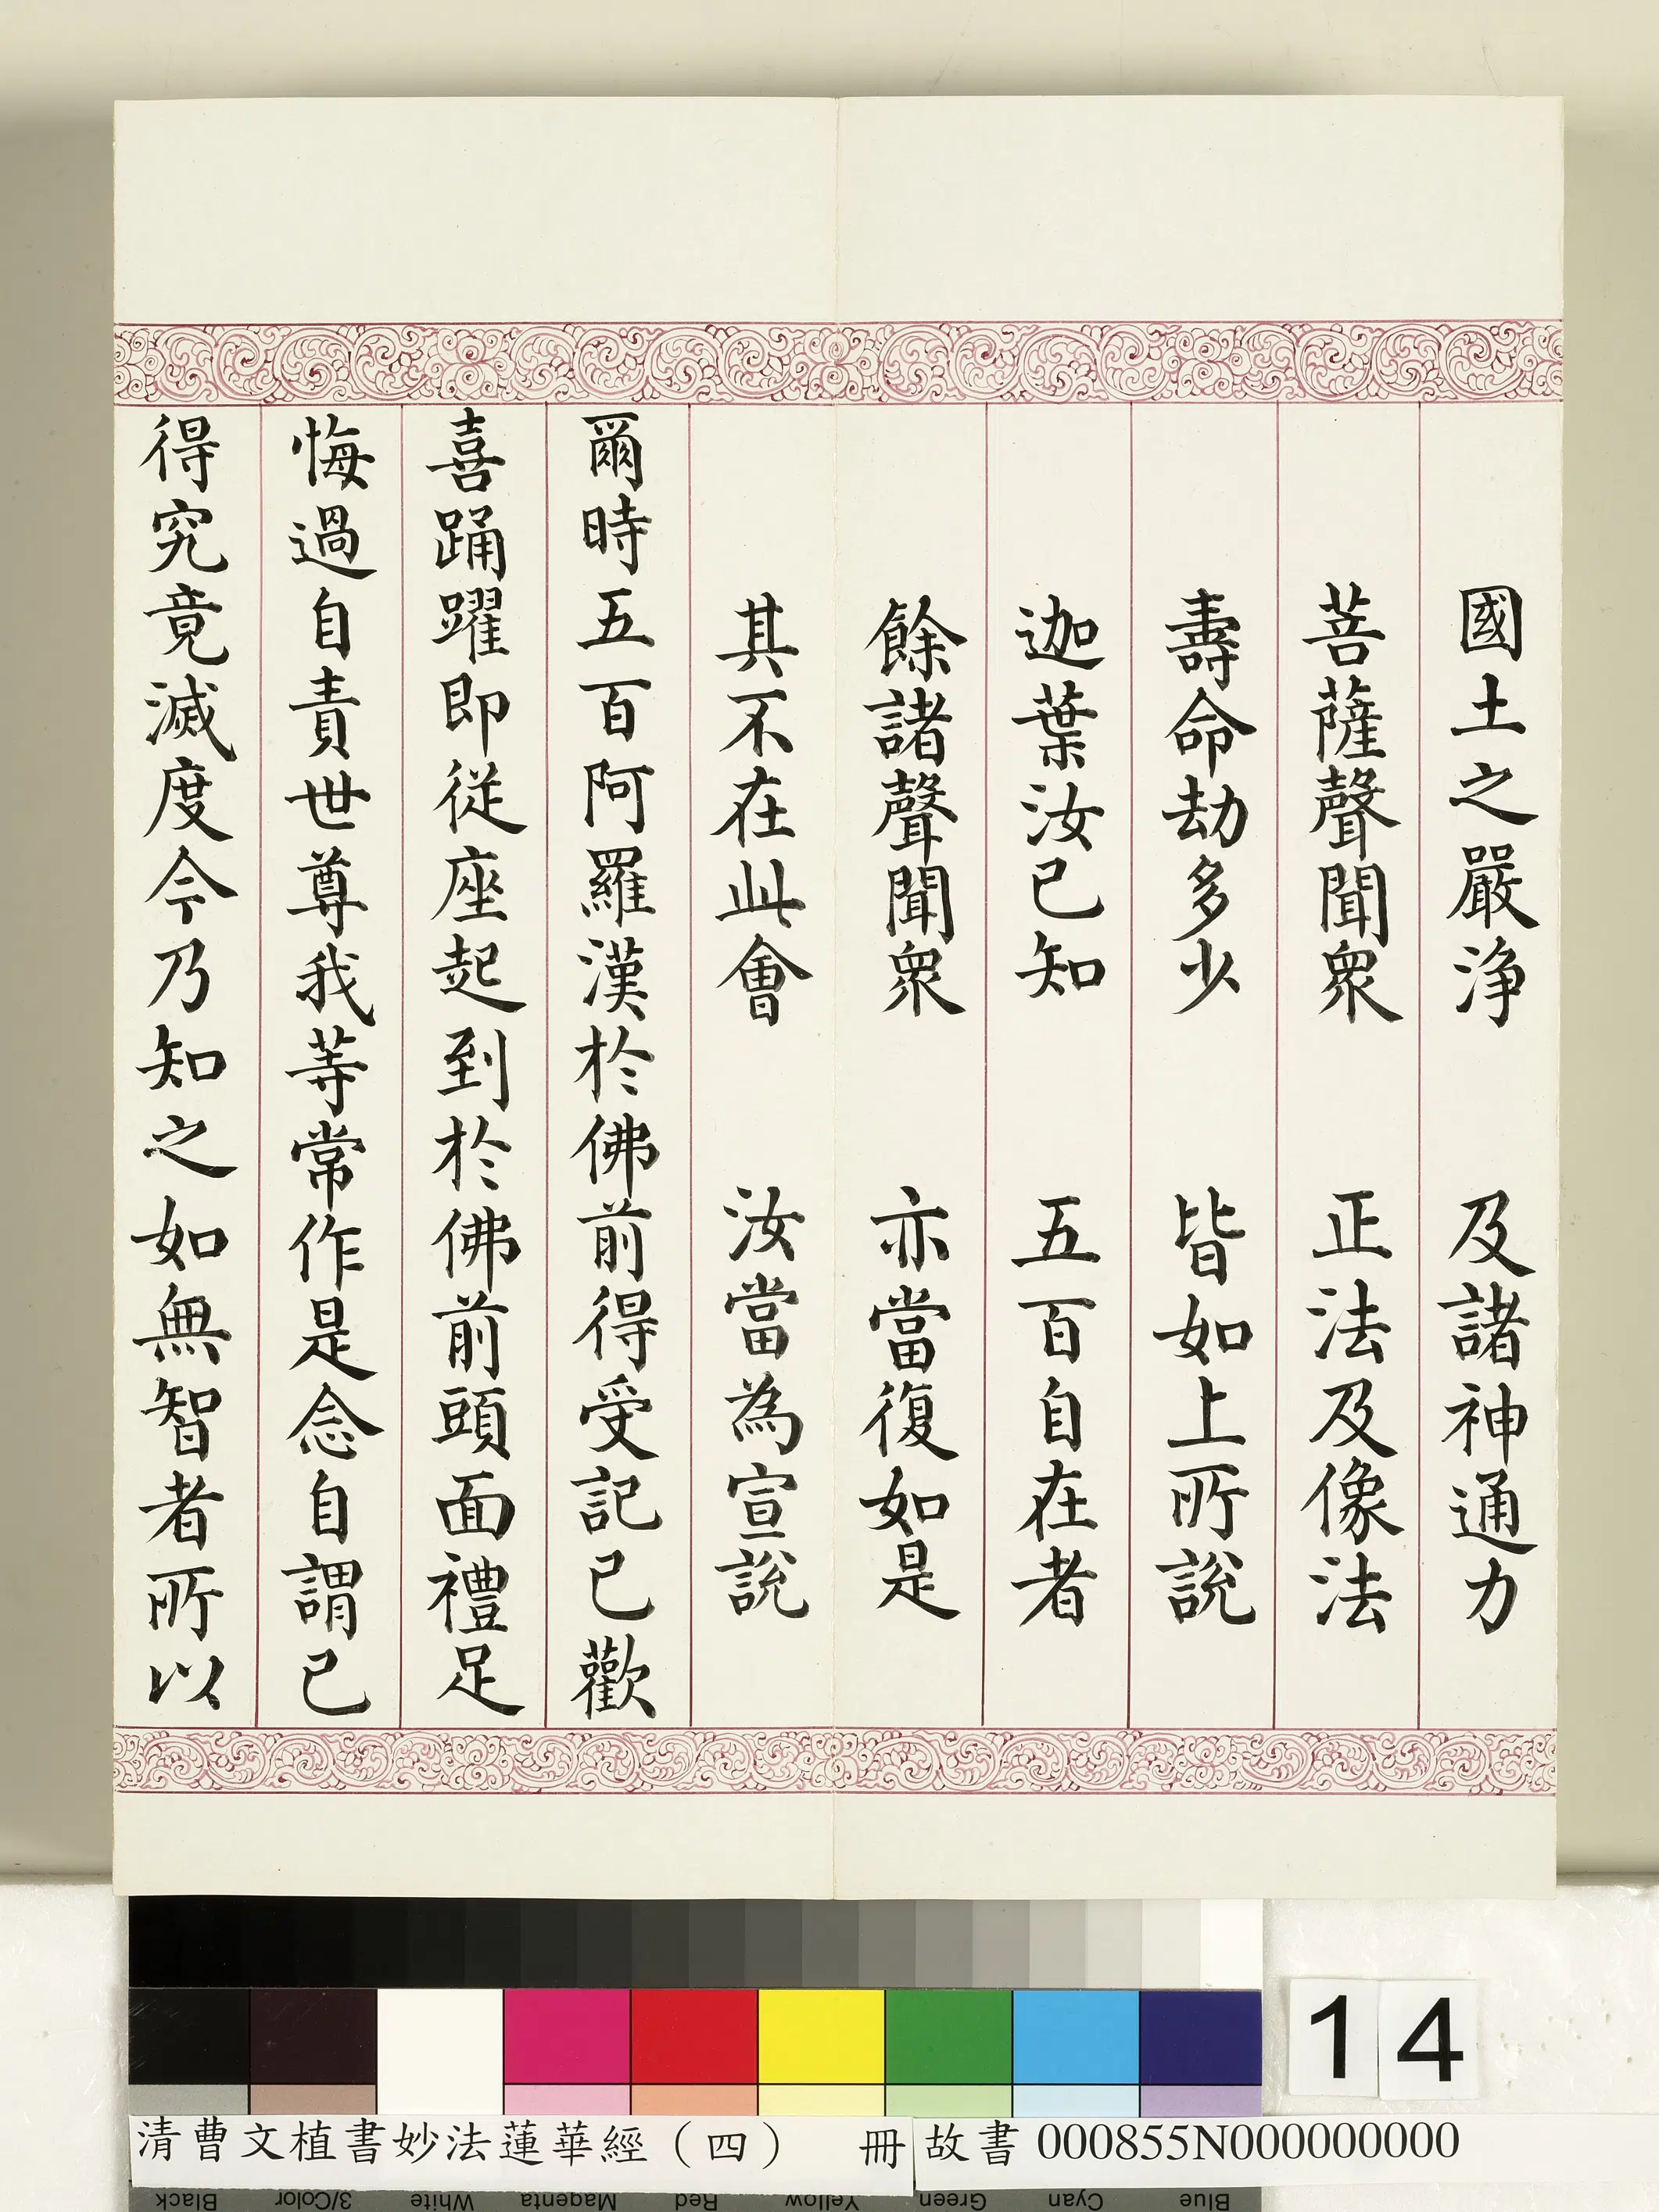 國土之嚴淨　及諸神通力
菩薩聲聞衆　正法及像法
壽命劫多少　皆如上所說
迦葉汝已知　五百自在者
餘諸聲聞衆　亦當復如是
其不在此會　汝當為宣說
爾時五百阿羅漢於佛前得受記已歡
喜踊躍即從座起到於佛前頭面禮足
悔過自責世尊我等常作是念自謂已
得究竟滅度今乃知之如無智者所以
14
清曹文植書妙法蓮華經（四）　冊
故書 000855N000000000
Black 3/Color White Magenta Red Yellow Green Cyan Blue